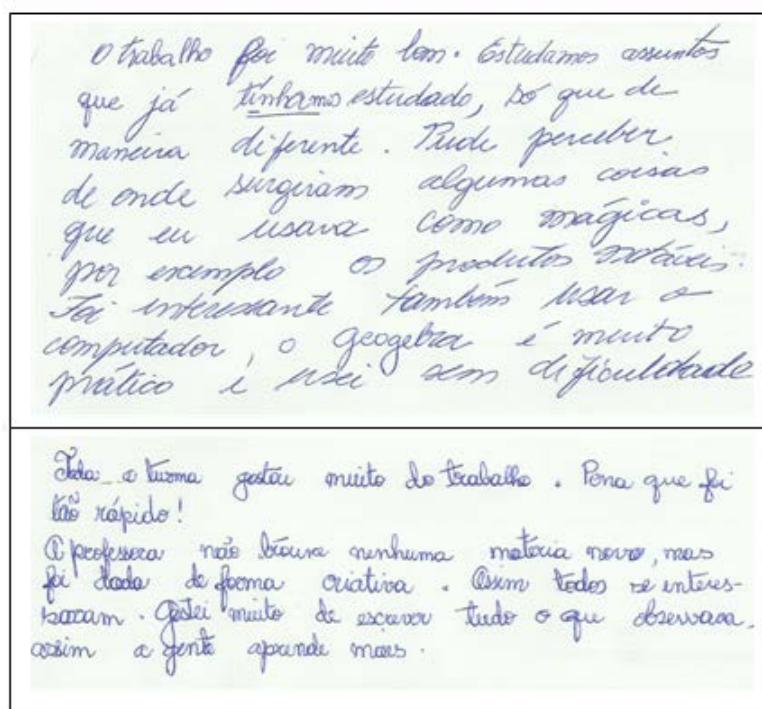 O trabalho foi muito bom. Estudamos assuntos
que já tínhamos estudado, só que de
maneira diferente. Pude perceber
de onde surgiram algumas coisas
que eu usava como mágicas,
por exemplo os produtos notáveis.
Foi interessante também usar o
computador, o geogebra é muito
prático e usei sem dificuldade
Toda a turma gostou muito do trabalho. Pena que foi
tão rápido!
A professora não trouxe nenhuma matéria nova, mas
foi dada de forma criativa. Assim todos se interes-
saram. Gostei muito de escrever tudo o que observava,
assim a gente aprende mais.